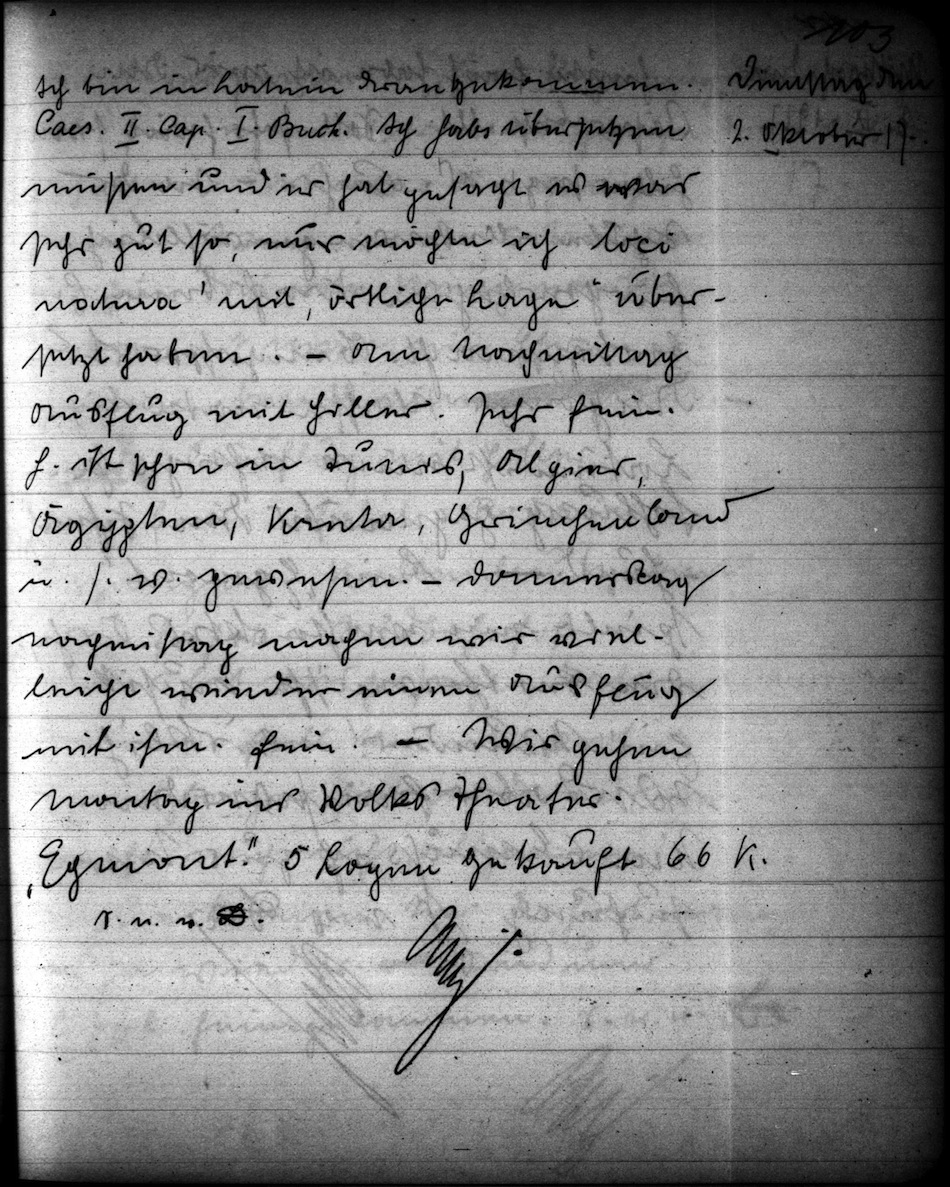 103
Dienstag den
2. Oktober 17.
Ich bin in Latein drangekommen.
Caes. II. Cap. I. Buch. Ich habe übersetzen
müssen und er hat gesagt es war
sehr gut so, nur möchte ich „loci
natura" mit „örtliche Lage" über-
setzt haben. – Am Nachmittag
Ausflug mit Hiller. Sehr fein.
H. ist schon in Tunis, Algier,
Ägypten, Kreta, Griechenland
u. s. w. gewesen. – Donnerstag
nachmittag machen wir viel-
leicht wieder einen Ausflug
mit ihm. Fein. – Wir gehen
Montag ins Volks Theater.
„Egmont". 5 Logen gekauft 66 K.